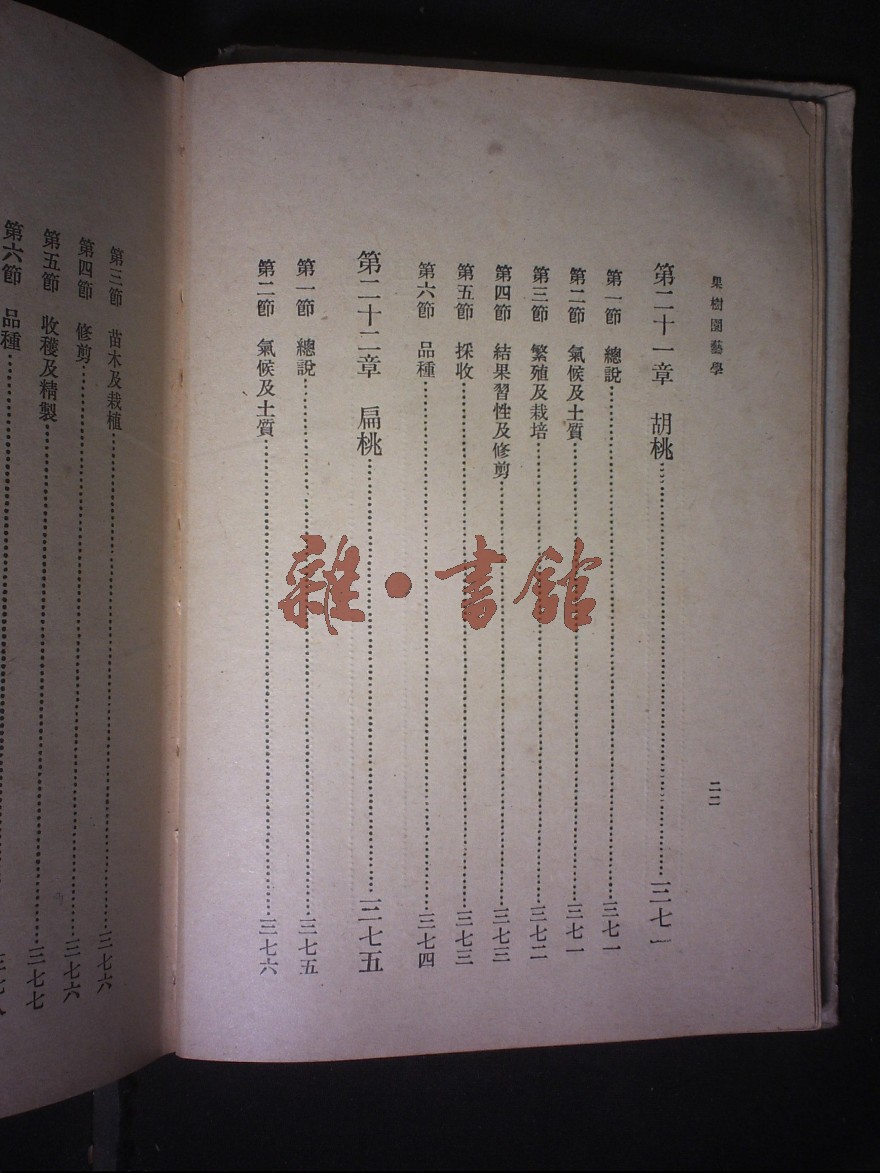 果樹園藝學
二二
第二十一章 胡桃……三七一
第一節 總說……三七一
第二節 氣候及土質……三七一
第三節 繁殖及栽培……三七二
第四節 結果習性及修剪……三七三
第五節 採收……三七三
第六節 品種……三七四
第二十二章 扁桃……三七五
第一節 總說……三七五
第二節 氣候及土質……三七六
第三節 苗木及栽植……三七六
第四節 修剪……三七六
第五節 收穫及精製……三七七
第六節 品種……三七八
雜·書館